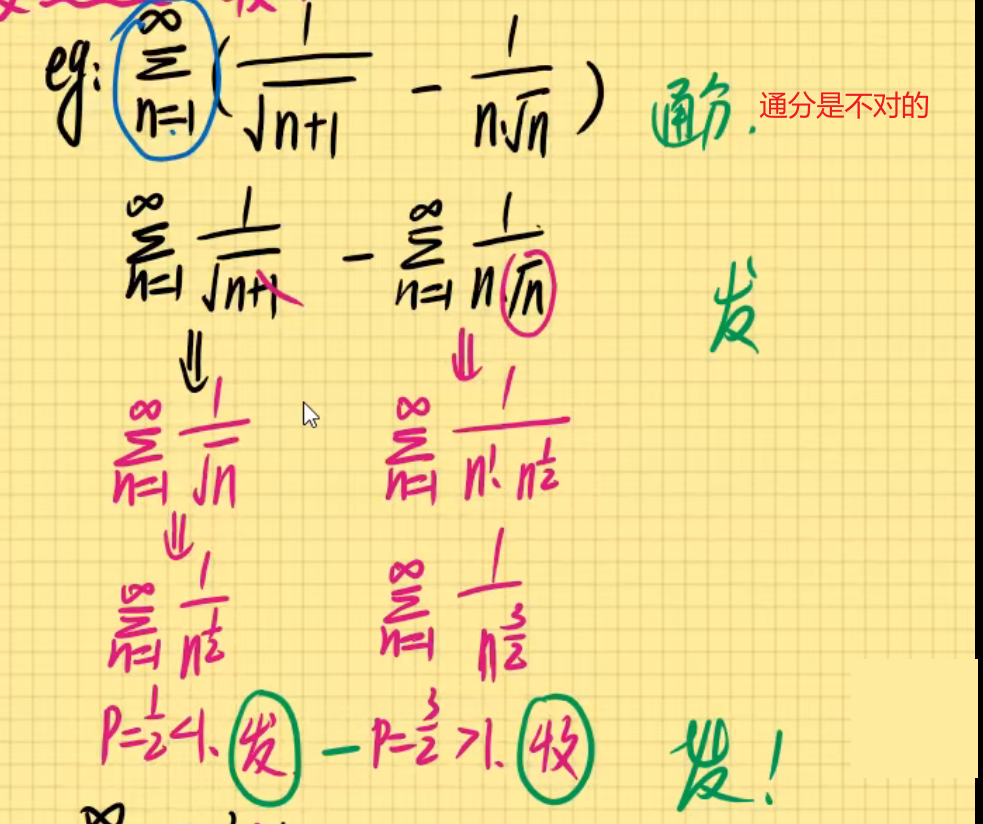 eg: ∞ Σ n=1 ( 1/√(n+1) − 1/(n·√n) ) 通分. 通分是不对的
∞ Σ n=1 1/√(n+1) − ∞ Σ n=1 1/(n·√n) 发
⇓ ⇓
∞ Σ n=1 1/√n ∞ Σ n=1 1/(n¹·n^½)
⇓
∞ Σ n=1 1/n^½ ∞ Σ n=1 1/n^(3/2)
P=½<1. 发 − P=3/2>1. 收 发!